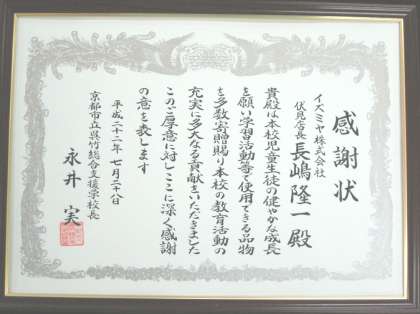 感謝状
イズミヤ株式会社
伏見店長 長嶋隆一殿
貴殿は本校児童生徒の健やかな成長
を願い学習活動等で使用できる品物
を多数寄贈賜り本校の教育活動の
充実に多大なる貢献をいただきました
このご厚意に対しここに深く感謝
の意を表します
平成二十二年七月二十八日
京都市立呉竹総合支援学校長
永井 実